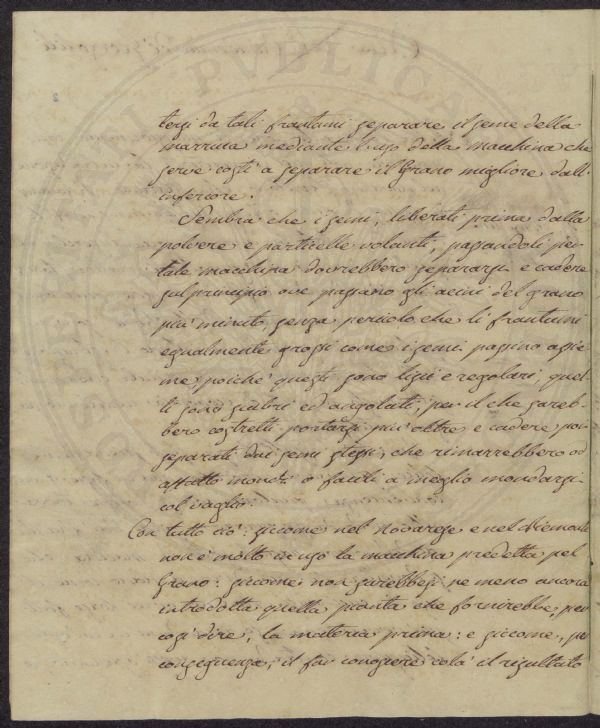 tersi da tali frantumi separare il seme della
marruca mediante l'uso della macchina che
serve costì a separare il Grano migliore dall'
inferiore.
Sembra che i semi, liberati prima dalla
polvere e particelle volanti, passandoli per
tale macchina dovrebbero separarsi e cadere
sul principio ove passano gli acini del grano
più minuto, senza pericolo che li frantumi
egualmente grossi come i semi passino assie-
me, poiché questi sono lisci e regolari, quel-
li sono scabri ed angolati, per il che sareb-
bero costretti portarsi più oltre e cadere poi
separati dai semi stessi, che rimarrebbero od
affatto mondi o facili a meglio mondarsi
col vaglio.
Con tutto ciò: siccome nel Novarese e nel Piemonte
non è molto in uso la macchina predetta pel
Grano: siccome non sarebbesi ne meno ancora
introdotta quella pianta che fornirebbe, per
così dire, la materia prima: e siccome, per
conseguenza, il far conoscere colà il risultato